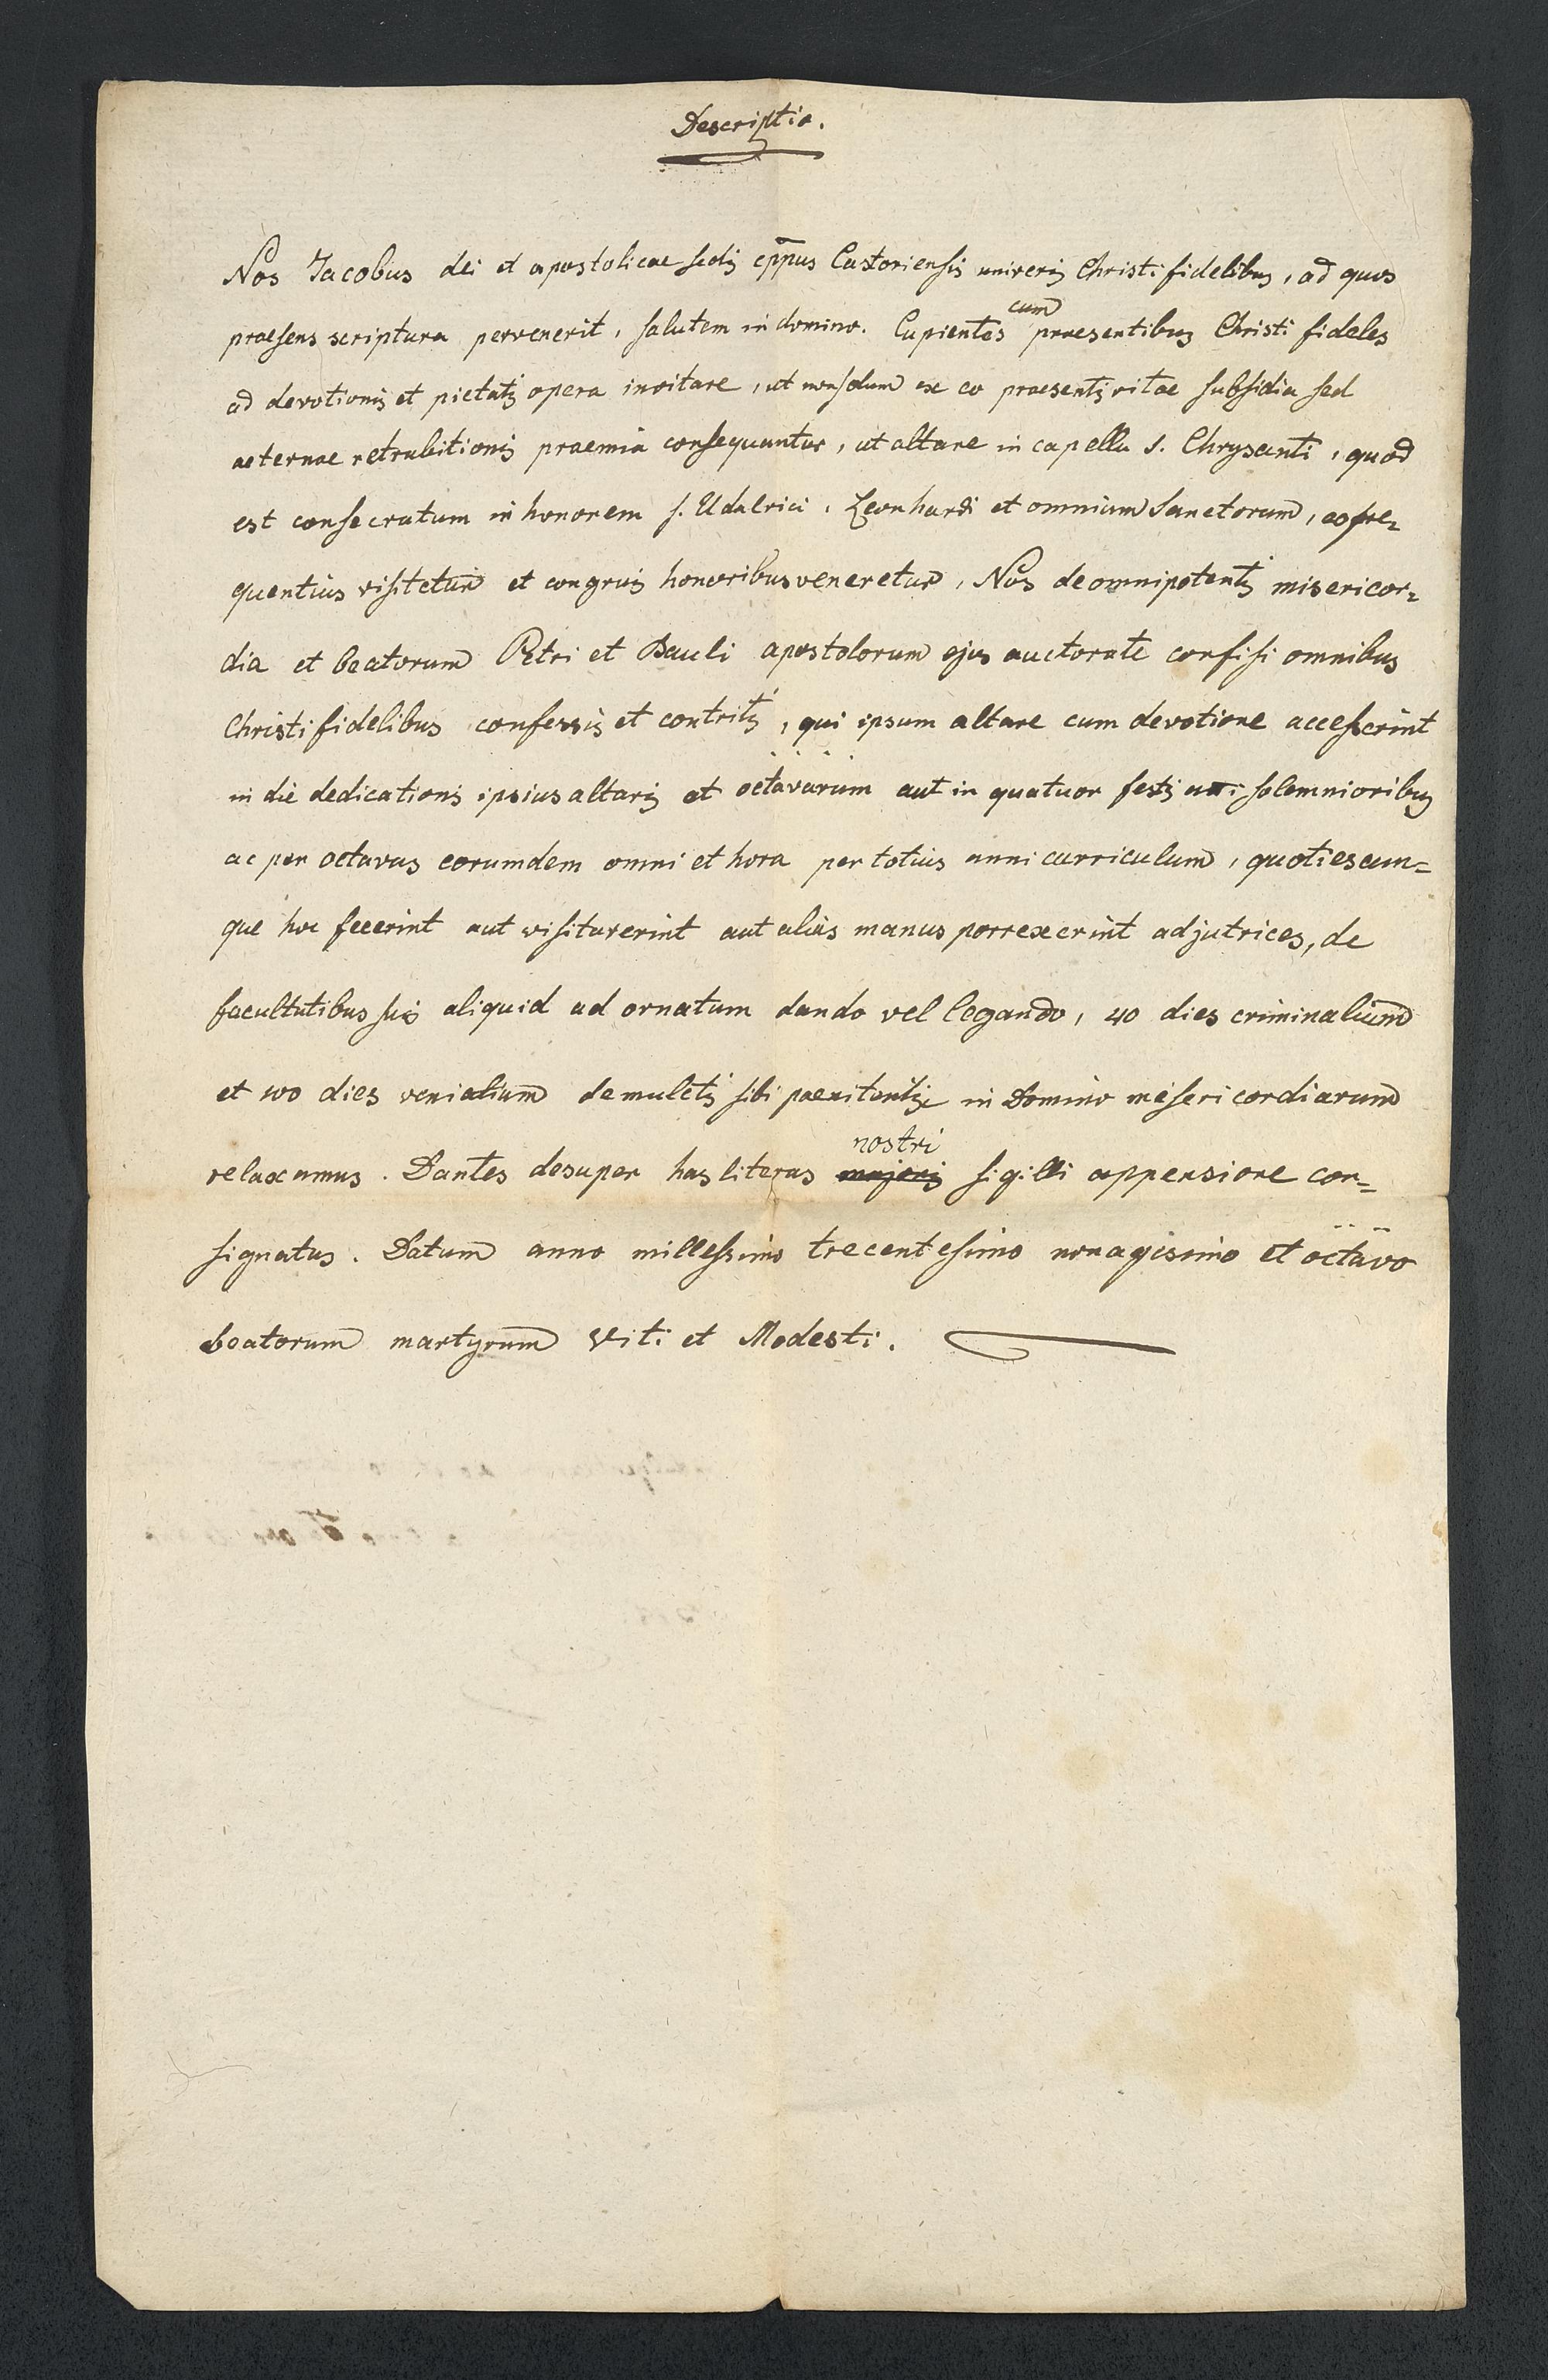 Descriptio.
Nos Jacobus dei et apostolicae sedis eppus Castoriensis universis Christi fidelibus, ad quos
cum
praesens scriptura pervenerit, salutem in domino. Cupientes praesentibus Christi fideles
ad devotionis et pietatis opera invitare, ut non solum ex eo praesentis vitae subsidia sed
aeternae retrubitionis praemia consequantur, ut altare in capella s. Chrysanti, quod
est consecratum in honorem s. Udalrici, Leonhardi et omnium Sanctorum, eo fre=
quentius visitetur et congruis honoribus veneretur, Nos de omnipotentis misericor=
dia et beatorum Petri et Pauli apostolorum ejus auctorate confisi omnibus
Christi fidelibus confessis et contritis, qui ipsum altare cum devotione accesserint
in die dedicationis ipsius altaris et octavarum aut in quatuor festis solemnioribus
ac per octavas eorumdem omni et hora per totius anni curriculum, quotiescun=
que hoc fecerint aut visitaverint aut alias manus porrexerint adjutrices, de
facultatibus suis aliquid ad ornatum dando vel legando, 40 dies criminalium
et 100 dies venialium de mulctis sibi in Domino misericordiarum
nostri
relaxamus. Dantes desuper has literas majoris sigilli appensione con=
signatas. Datum anno millessimo trecentesimo nonagesimo et octavo
beatorum martyrum Viti et Modesti.